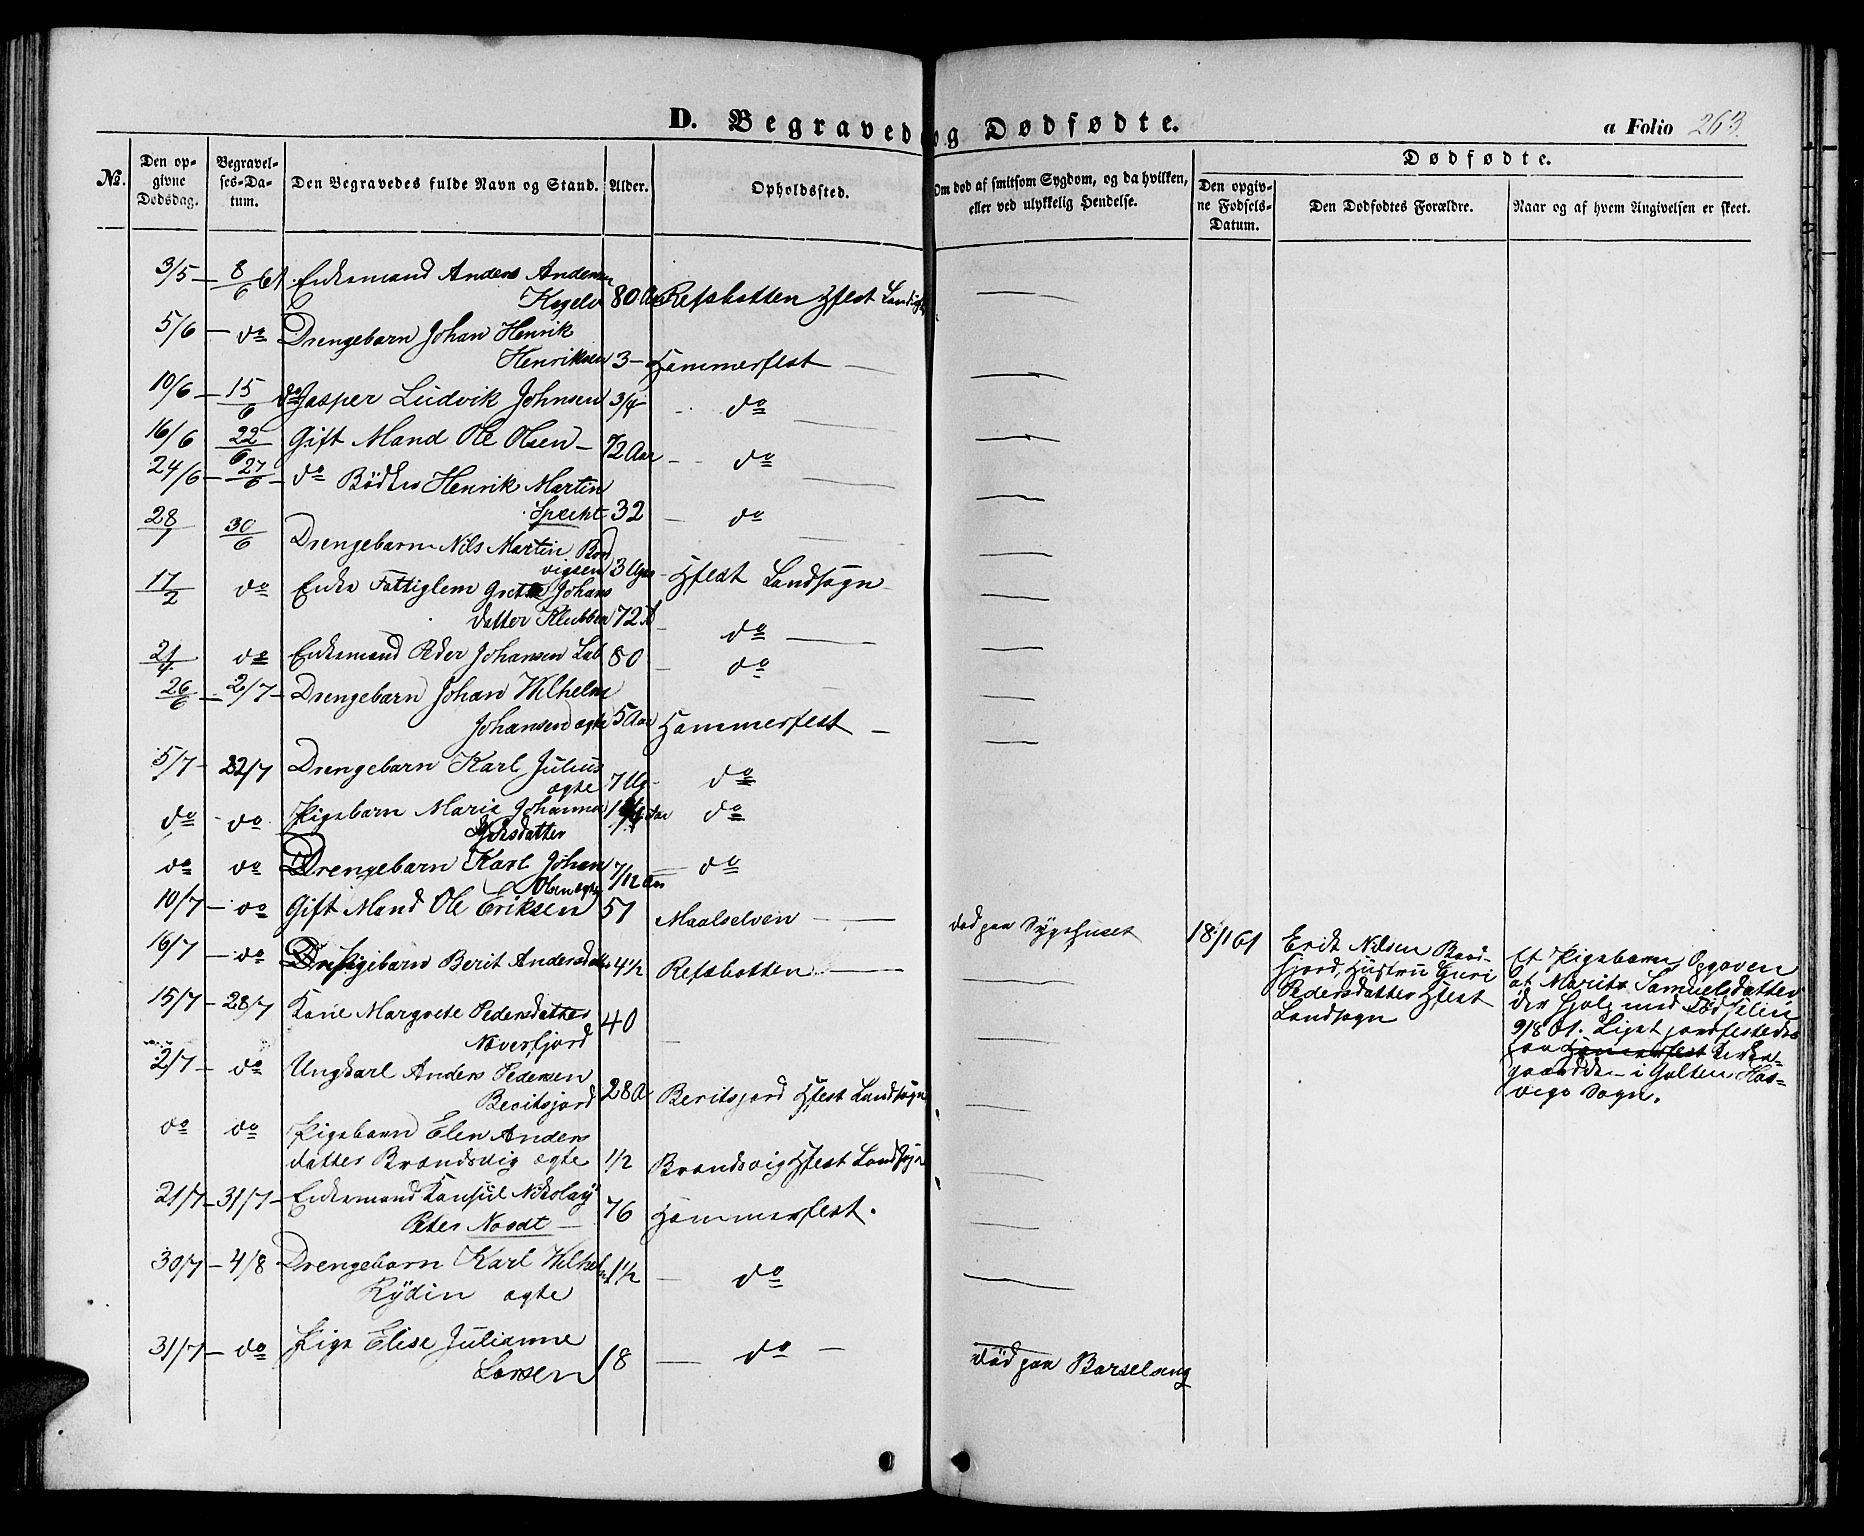 D. Begravede og Dødfødte.
a Folio 263.
No.
Den op-
givne
Dødsdag.
Begravel-
ses-Da-
tum.
Den Begravedes fulde Navn og Stand.
Alder.
Opholdssted.
Om død af smitsom Sygdom, og da hvilken,
eller ved ulykkelig Hendelse.
Dødfødte.
Den opgiv-
ne Fødsels-
Datum.
Den Dødfødtes Forældre.
Naar og af hvem Angivelsen er skeet.
3/5 — 8/6 61 Enkemand Anders Andersen
Kogelv 80 Aar Refsbotten Hfest Landsogn
5/6 — do Drengebarn Johan Henrik
Henriksen 3 — Hammerfest —
10/6 — 15/6 do Jasper Ludvik Johnsen 3/4 do
16/6 22/6 Gift Mand Ole Olsen — 72 Aar — do
24/6 — 27/6 — do Bødker Henrik Martin
Specht 32 — do
28/1 30/6 Drengebarn Nils Martin Bod
vigsen 3 Uger Hfest Landsogn
17/2 do Enke Fattiglem Grethe Johans
datter Klubben 72 A — do —
21/4 do Enkemand Peder Johansen Lab 80 — do
26/6 — 2/7 — Drengebarn Johan Wilhelm
Johansen ægte 5 Aar Hammerfest —
5/7 — 22/7 Drengebarn Karl Julius
ægte 7 Ug — do
do do Pigebarn Marie Johanna
datter do
do do Drengebarn Karl Johan
Olsen ægte 7/12 Aar — do
10/7 — do Gift Mand Ole Eriksen 51 Maalselven — død paa Sygehuset
16/7 — do Pigebarn Berit Andersdatter 4 1/2 Refsbotten —
15/7 — 28/7 Kone Margrete Pedersdatter
Næverfjord 40 —
2/7 — do Ungkarl Anders Pedersen
Beritsjord 28 A Beritsjord Hfest Landsogn
do do Pigebarn Elen Anders
datter Brandsvig ægte 1/2 Brandsvig Hfest Landsogn
21/7 — 31/7 — Enkemand Konsul Nikolay
Peter Noodt — 76 Hammerfest.
30/7 — 4/8 Drengebarn Karl Wilhelm
Rydin ægte 1 1/2 — do
31/7 — do Pige Elise Julianne
Larsen 18 — do — død paa Barselseng
18/1 61
Erik Nilsen
fjord, Hustru Guri
Pedersdatter Hfest
Landsogn
Et Pigebarn, Opgaven
at Marit Samuelsdatter
der hjalp med Fødselen
9/8 61. Liget jordfestedes
paa Hammerfest Kirke-
gaard — i Galten Has-
vigs Sogn.